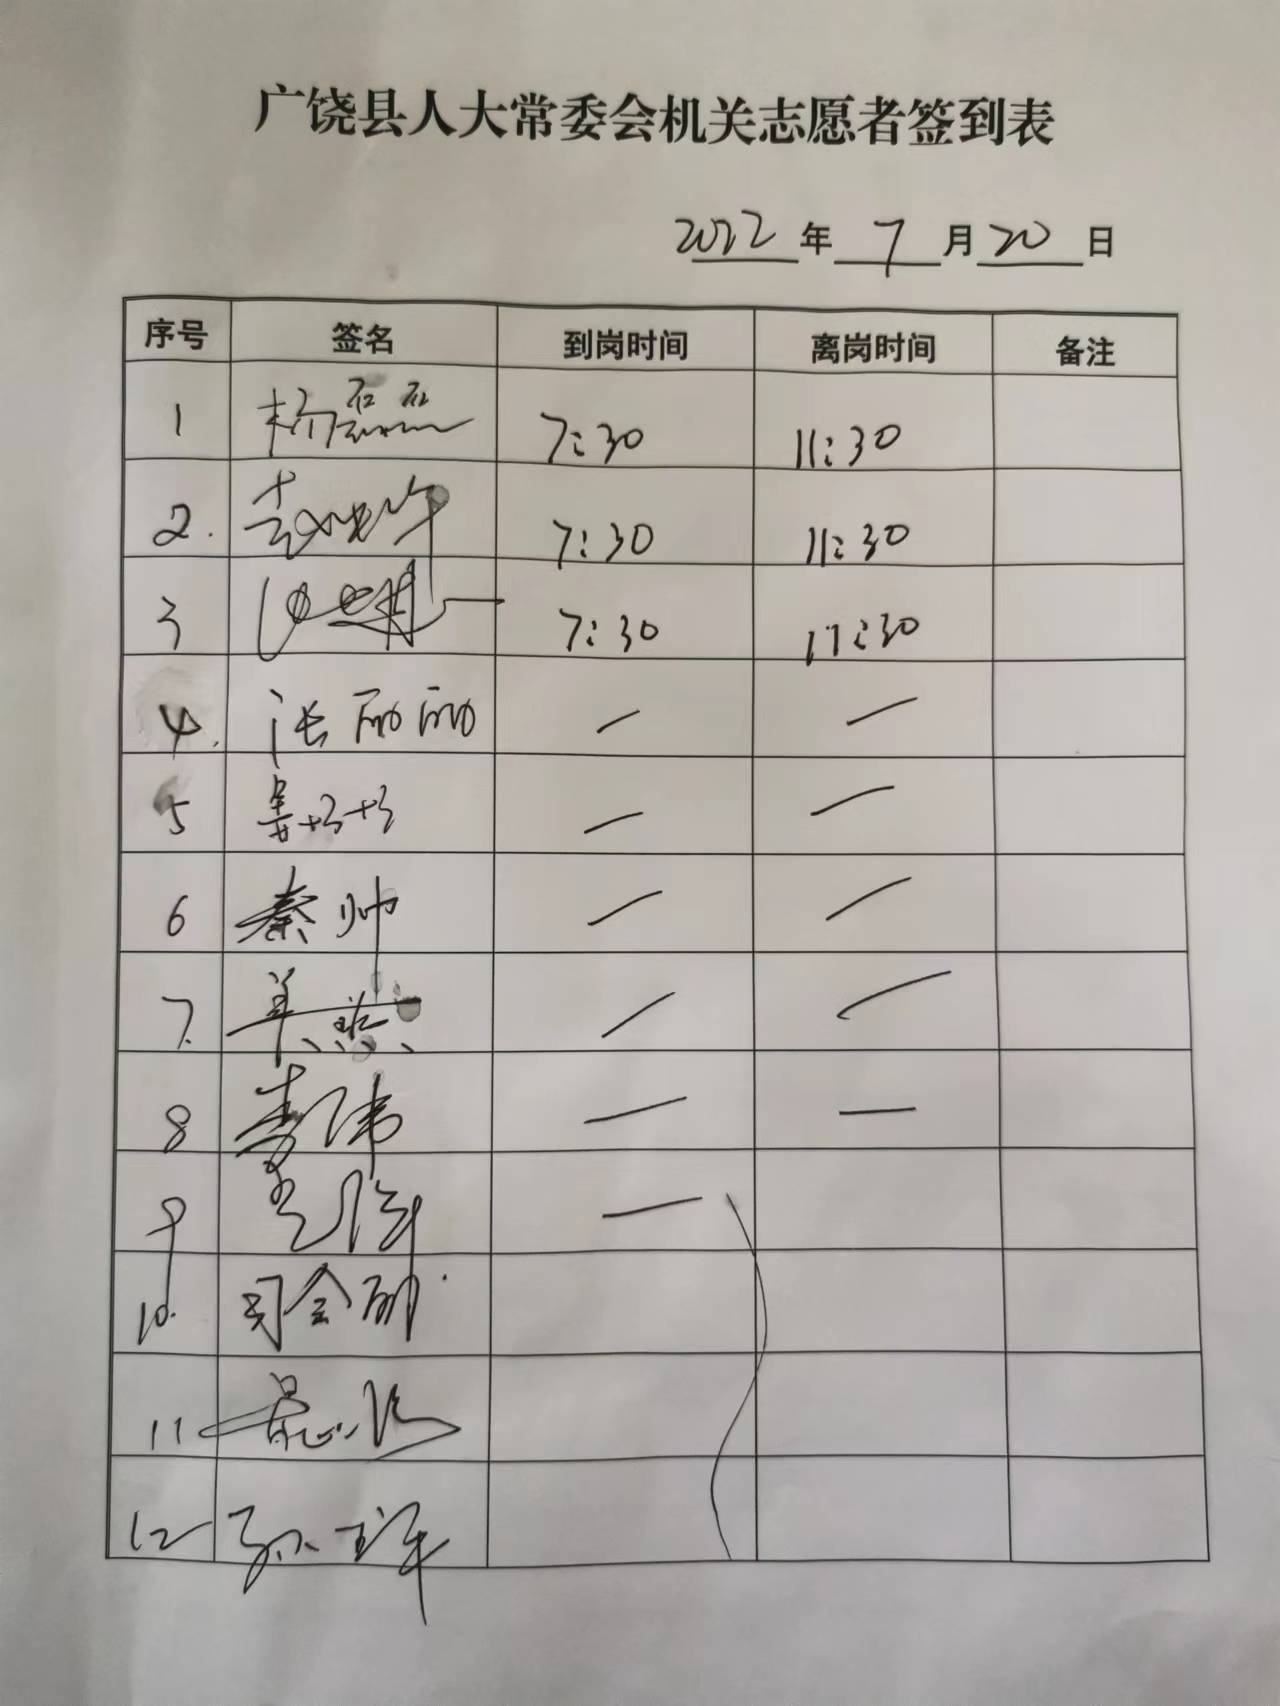 广饶县人大常委会机关志愿者签到表
2022年7月20日
序号 签名 到岗时间 离岗时间 备注
1 杨磊磊 7:30 11:30
2. 7:30 11:30
3 7:30 11:30
4. 张丽丽 — —
5 — —
6 秦帅 — —
7. — —
8 李伟 — —
9 —
10. 司会丽
11
12 孙